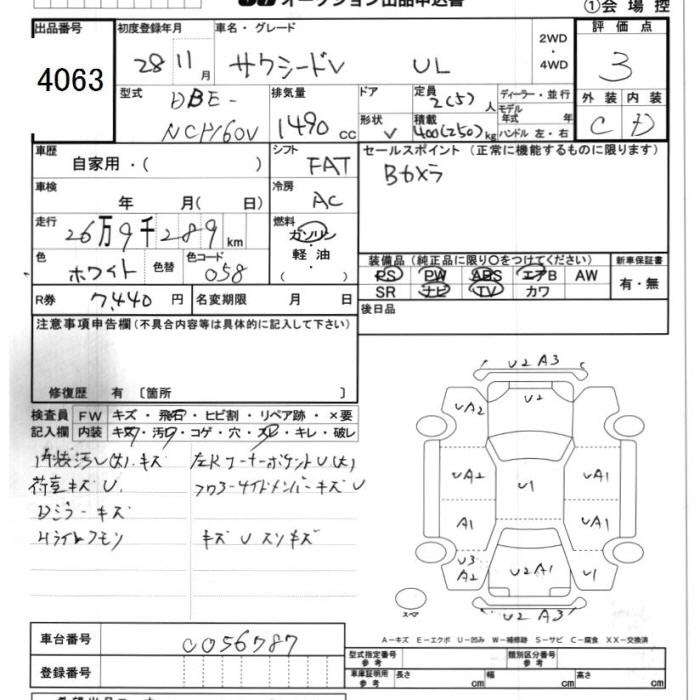 オークション出品申込書
①会場控
出品番号 4063
初度登録年月 28 11月
車名・グレード サクシードV UL
2WD・4WD
評価点 3
外装 C 内装 D
型式 DBE-NCP160V
排気量 1490cc
ドア
形状 V
定員 2(5)人
積載 400(250)kg
ディーラー・並行
モデル年式 年式
ハンドル 左・右
車歴 自家用・( )
シフト FAT
セールスポイント (正常に機能するものに限ります)
Bカメラ
車検 年 月( 日)
冷房 AC
走行 26万9千289km
燃料 ガソリン・軽油・( )
色 ホワイト 色替 色コード 058
装備品(純正品に限り○をつけてください)
PS PW ABS エアB AW
SR ナビ TV カワ
新車保証書 有・無
R券 7,440円
名変期限 月 日
後日品
注意事項申告欄(不具合内容等は具体的に記入して下さい)
修復歴 有〔箇所 〕
検査員記入欄
FW キズ・飛石・ヒビ割・リペア跡・×要
内装 キズ・汚れ・コゲ・穴・スレ・キレ・破レ
内装汚レ(大)、キズ
荷室キズU
Dミラーキズ
Hライトクモリ
左Rコーナーポケット U(大)
フロアーサイドメンバーキズU
キズUスリキズ
U2 A3
U2
UA2
UA2 U1 UA1
A1 UA1
U3 A2
U2A1
U1
U2 A3
スペア
A-キズ E-エクボ U-凹み W-補修跡 S-サビ C-腐食 XX-交換済
車台番号 0056787
登録番号
型式指定番号 参考
類別区分番号 参考
車庫証明用 参考 長さ cm 幅 cm 高さ cm